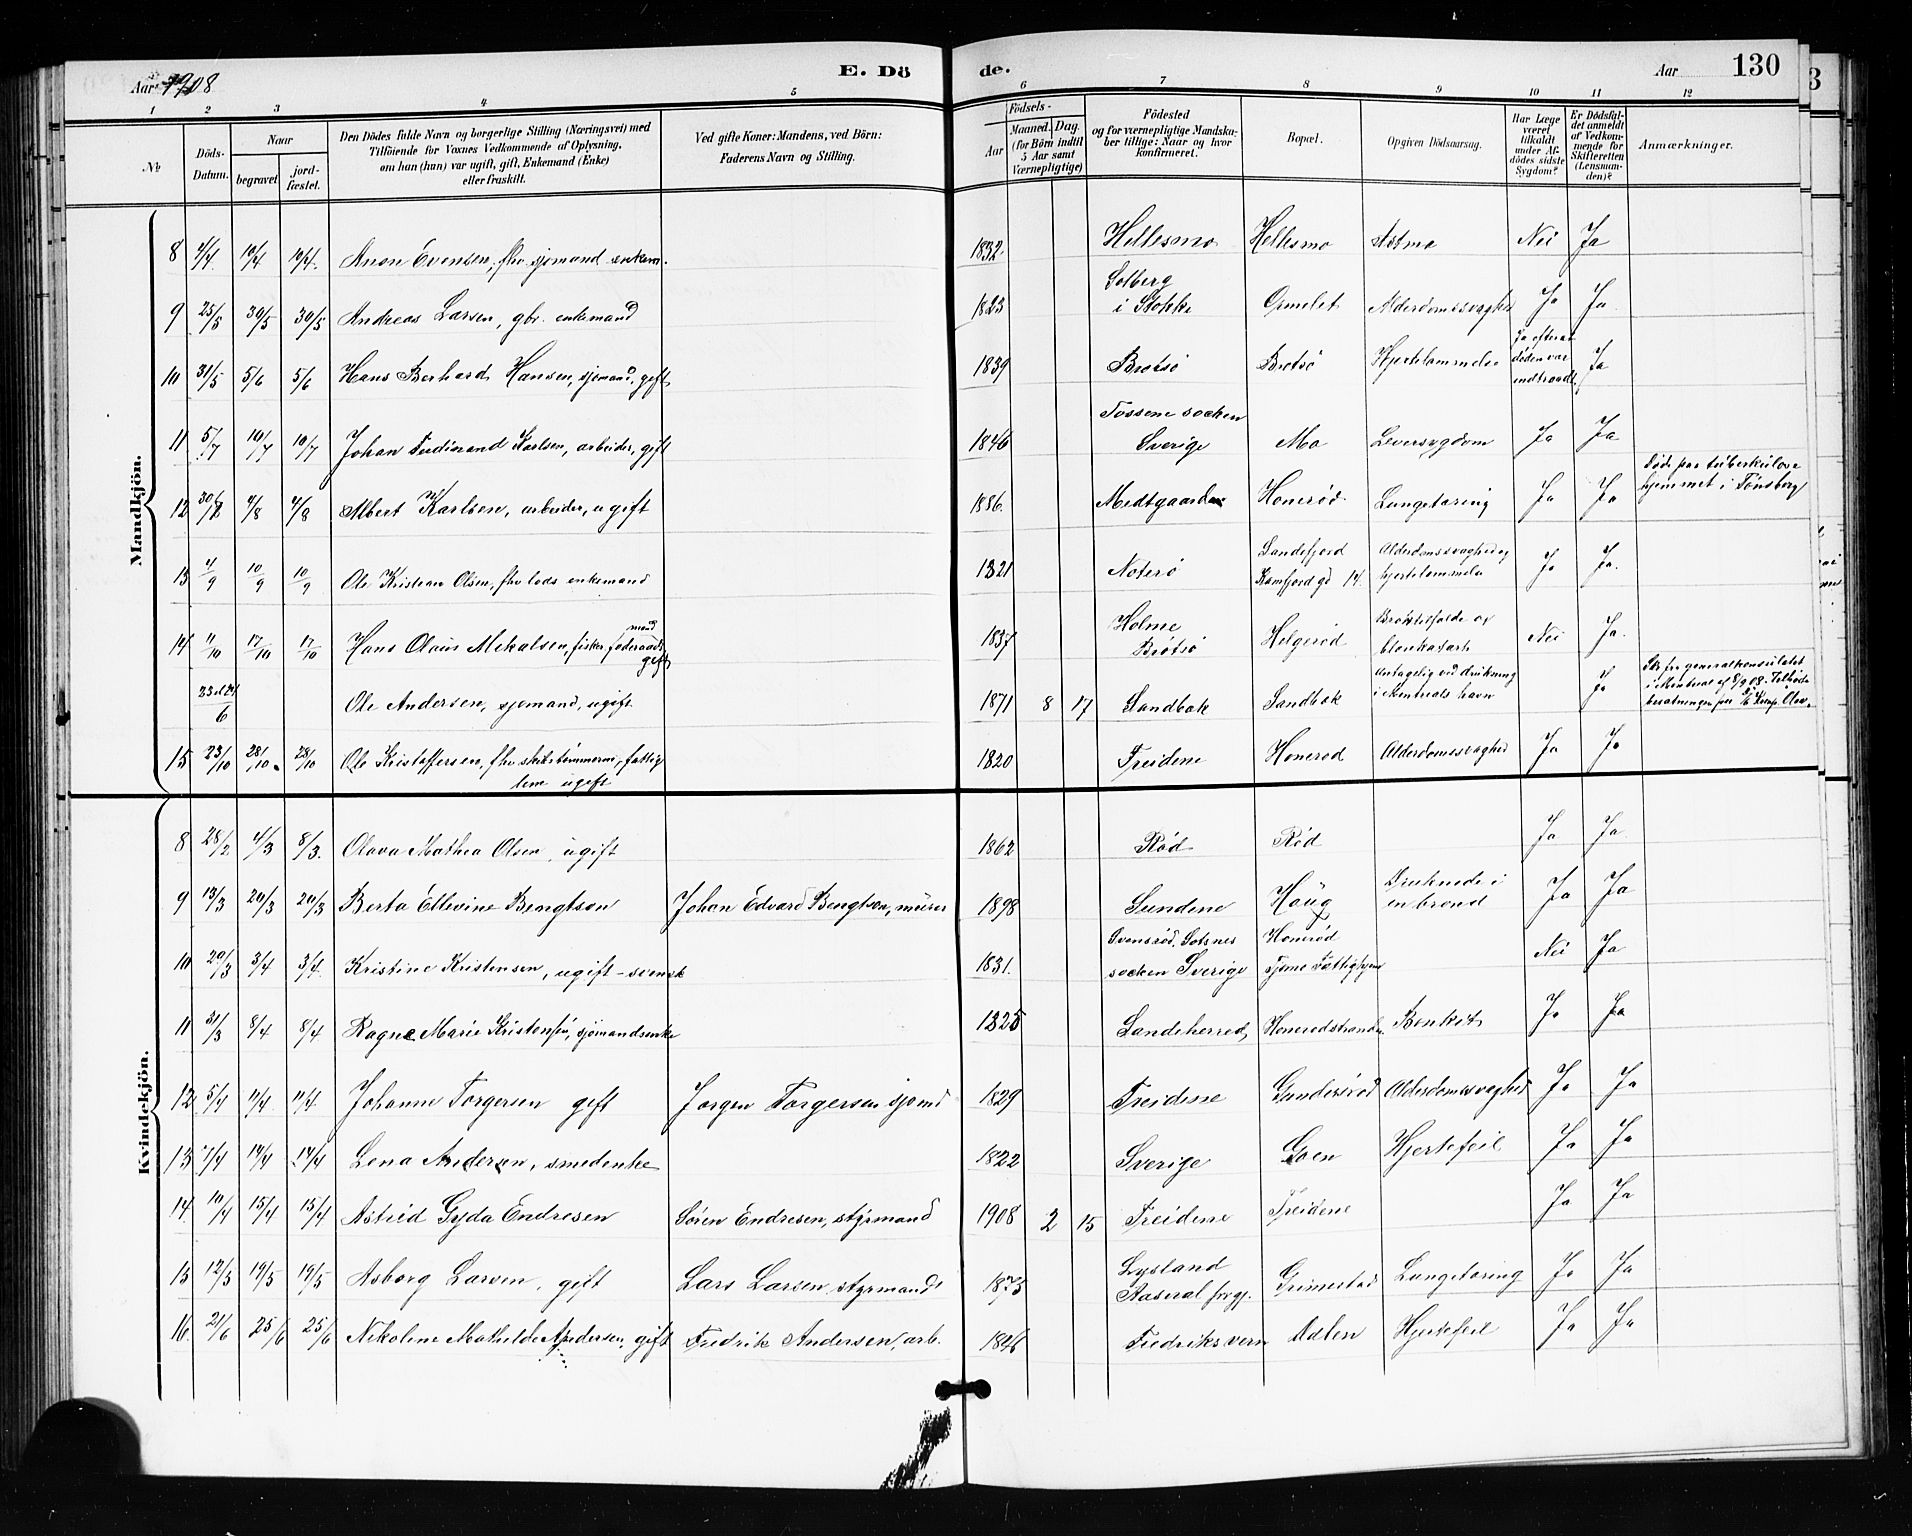 Aar 1908 E. Dö de. Aar 130
1 2 3 4 5 6 7 8 9 10 11 12
№ Döds-Datum. Naar begravet jordfæstet. Den Dödes fulde Navn og borgerlige Stilling (Næringsvei) med Tilföiende for Voxnes Vedkommende af Oplysning, om han (hun) var ugift, gift, Enkemand (Enke) eller fraskilt. Ved gifte Koner: Mandens, ved Börn: Faderens Navn og Stilling. Födsels- Aar Maaned. Dag. (for Börn indtil 5 Aar samt Værnepligtige) Födested og for værnepligtige Mandskaber tillige: Naar og hvor konfirmeret. Bopæl. Opgiven Dödsaarsag. Har Læge været tilkaldt under Afdödes sidste Sygdom? Er Dödsfaldet anmeldt af Vedkommende for Skifteretten (Lensmanden)? Anmærkninger.
Mandkjön.
8 4/4 10/4 10/4. Anon Evensen, fhv. sjømand enkem. 1832. Hellesmo Hellesmo Astma Nei Ja
9 25/5 30/5 30/5 Andreas Larsen, gbr. enkemand 1823 Solberg i Stokke Ormelet Alderdomssvaghed Ja Ja.
10 31/5 5/6 5/6 Hans Berhard Hansen, sjømand, gift 1839 Brøtsø Brøtsø Hjertelammelse Ja efterat døden var indtraadt. Ja
11 5/7 10/7 10/7 Johan Ferdinand Karlsen, arbeider, gift 1846 Tossene socken Sverige Mo Leversygdom Ja Ja
12 30/7 4/8 4/8 Albert Karlsen, arbeider, ugift 1886. Medtgaarden Honerød Lungetæring Ja Ja Døde paa tuberkulosehjemmet i Tønsberg
13 4/9 10/9 10/9 Ole Kristian Olsen, fhv lods enkemand 1821 Noterø Sandefjord Kamfjord gd 14. Alderdomssvaghed og hjertelammelse Ja Ja.
14 11/10 17/10 17/10 Hans Olaus Mikalsen, fisker føderaadsmand gift 1837 Holme Brøtsø Helgerød Nei Ja.
23 el 24/6 Ole Andersen, sjømand, ugift 1871 8 17 Sandbæk Sandbæk antagelig ved drukning i Montreals havn Ja Skr fra generalkonsulatet i Montreal af 8/9 08.
15 23/10 28/10 28/10 Ole Kristoffersen, fhv skibstømmerm, fattiglem ugift 1820 Treidene Honerød Alderdomssvaghed Ja Ja
Kvindekjön.
8 28/2 4/3 8/3. Olava Mathea Olsen, ugift 1862 Rød Rød Ja Ja.
9 13/3 20/3 20/3 Berta Ellevine Bengtson Johan Edvard Bengtson, murer 1898 Sundene Haug Druknede i en brønd Ja Ja
10 20/3 3/4 3/4. Kristine Kristensen, ugift - svensk 1831. Svensrød, Sotsnes socken Sverige Honerød Tjømø Fattighjem Nei Ja
11 31/3 8/4 8/4 Ragne Marie Kristensen, sjømandsenke 1825 Sandeherred Honerødstranden Bronkit Ja Ja
12 5/4 11/4 11/4. Johanne Torgersen gift Jørgen Torgersen sjømd 1829 Treidene Gundersrød Alderdomssvaghed Ja Ja
13 7/4 14/4 14/4 Lena Andersen, smedenke 1822 Sverige Goen Hjertefeil Ja Ja
14. 10/4 15/4 15/4 Astrid Gyda Endresen Søren Endresen, styrmand 1908 2 15 Treidene Treidene Ja Ja
15 12/5 19/5 19/5 Asborg Larsen, gift Lars Larsen, styrmand 1873 Lystand Aaseral prgj. Grimestad Lungetæring Ja Ja
16. 21/6 25/6 25/6 Nikoline Mathilde Andersen, gift Fredrik Andersen, arb. 1846 Fredriksvern Adlen Hjertefeil Ja Ja